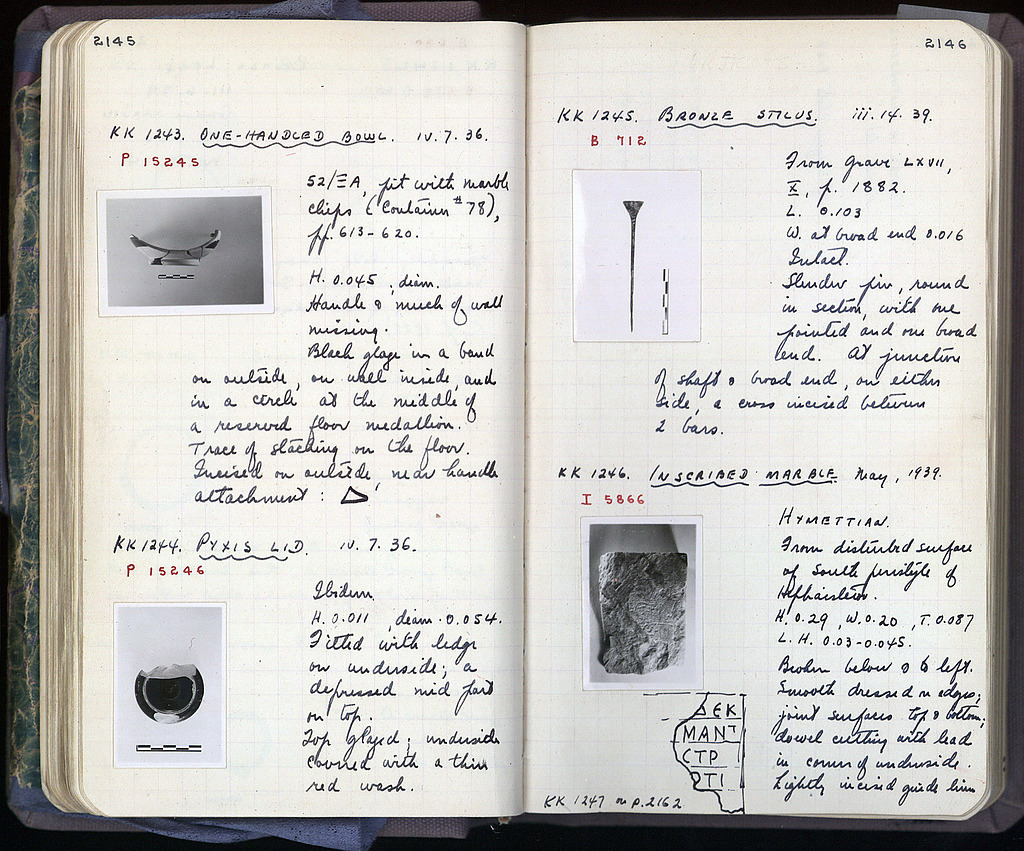 2145
KK 1243. ONE-HANDLED BOWL. IV. 7. 36.
P 15245
52/ΞA, pit with marble
chips (Container #78),
pp. 613-620.
H. 0.045, diam.
Handle & much of wall
missing.
Black glaze in a band
on outside, on wall inside, and
in a circle at the middle of
a reserved floor medallion.
Trace of stacking on the floor.
Incised on outside, near handle
attachment :
KK 1244. PYXIS LID. IV. 7. 36.
P 15246
Ibidem.
H. 0.011, diam. 0.054.
Fitted with ledge
on underside; a
depressed mid part
on top.
Top glazed; underside
covered with a thin
red wash.
2146
KK 1245. BRONZE STILUS. iii. 14. 39.
B 712
From grave LXVII,
X, p. 1882.
L. 0.103
W. at broad end 0.016
Intact.
Slender pin, round
in section, with one
pointed and one broad
end. At junction
of shaft & broad end, on either
side, a cross incised between
2 bars.
KK 1246. INSCRIBED MARBLE. May, 1939.
I 5866
HYMETTIAN.
From disturbed surface
of South peristyle of
Hephaisteion.
H. 0.29, W. 0.20, T. 0.087
L. H. 0.03-0.045.
Broken below & to left.
Smooth dressed on edges;
joint surfaces top & bottom;
dowel cutting with lead
in corner of underside.
Lightly incised guide lines
ΔΕΚ
ΜΑΝΤ
ΣΤΡ
ΟΤΙ
KK 1247 on p. 2162